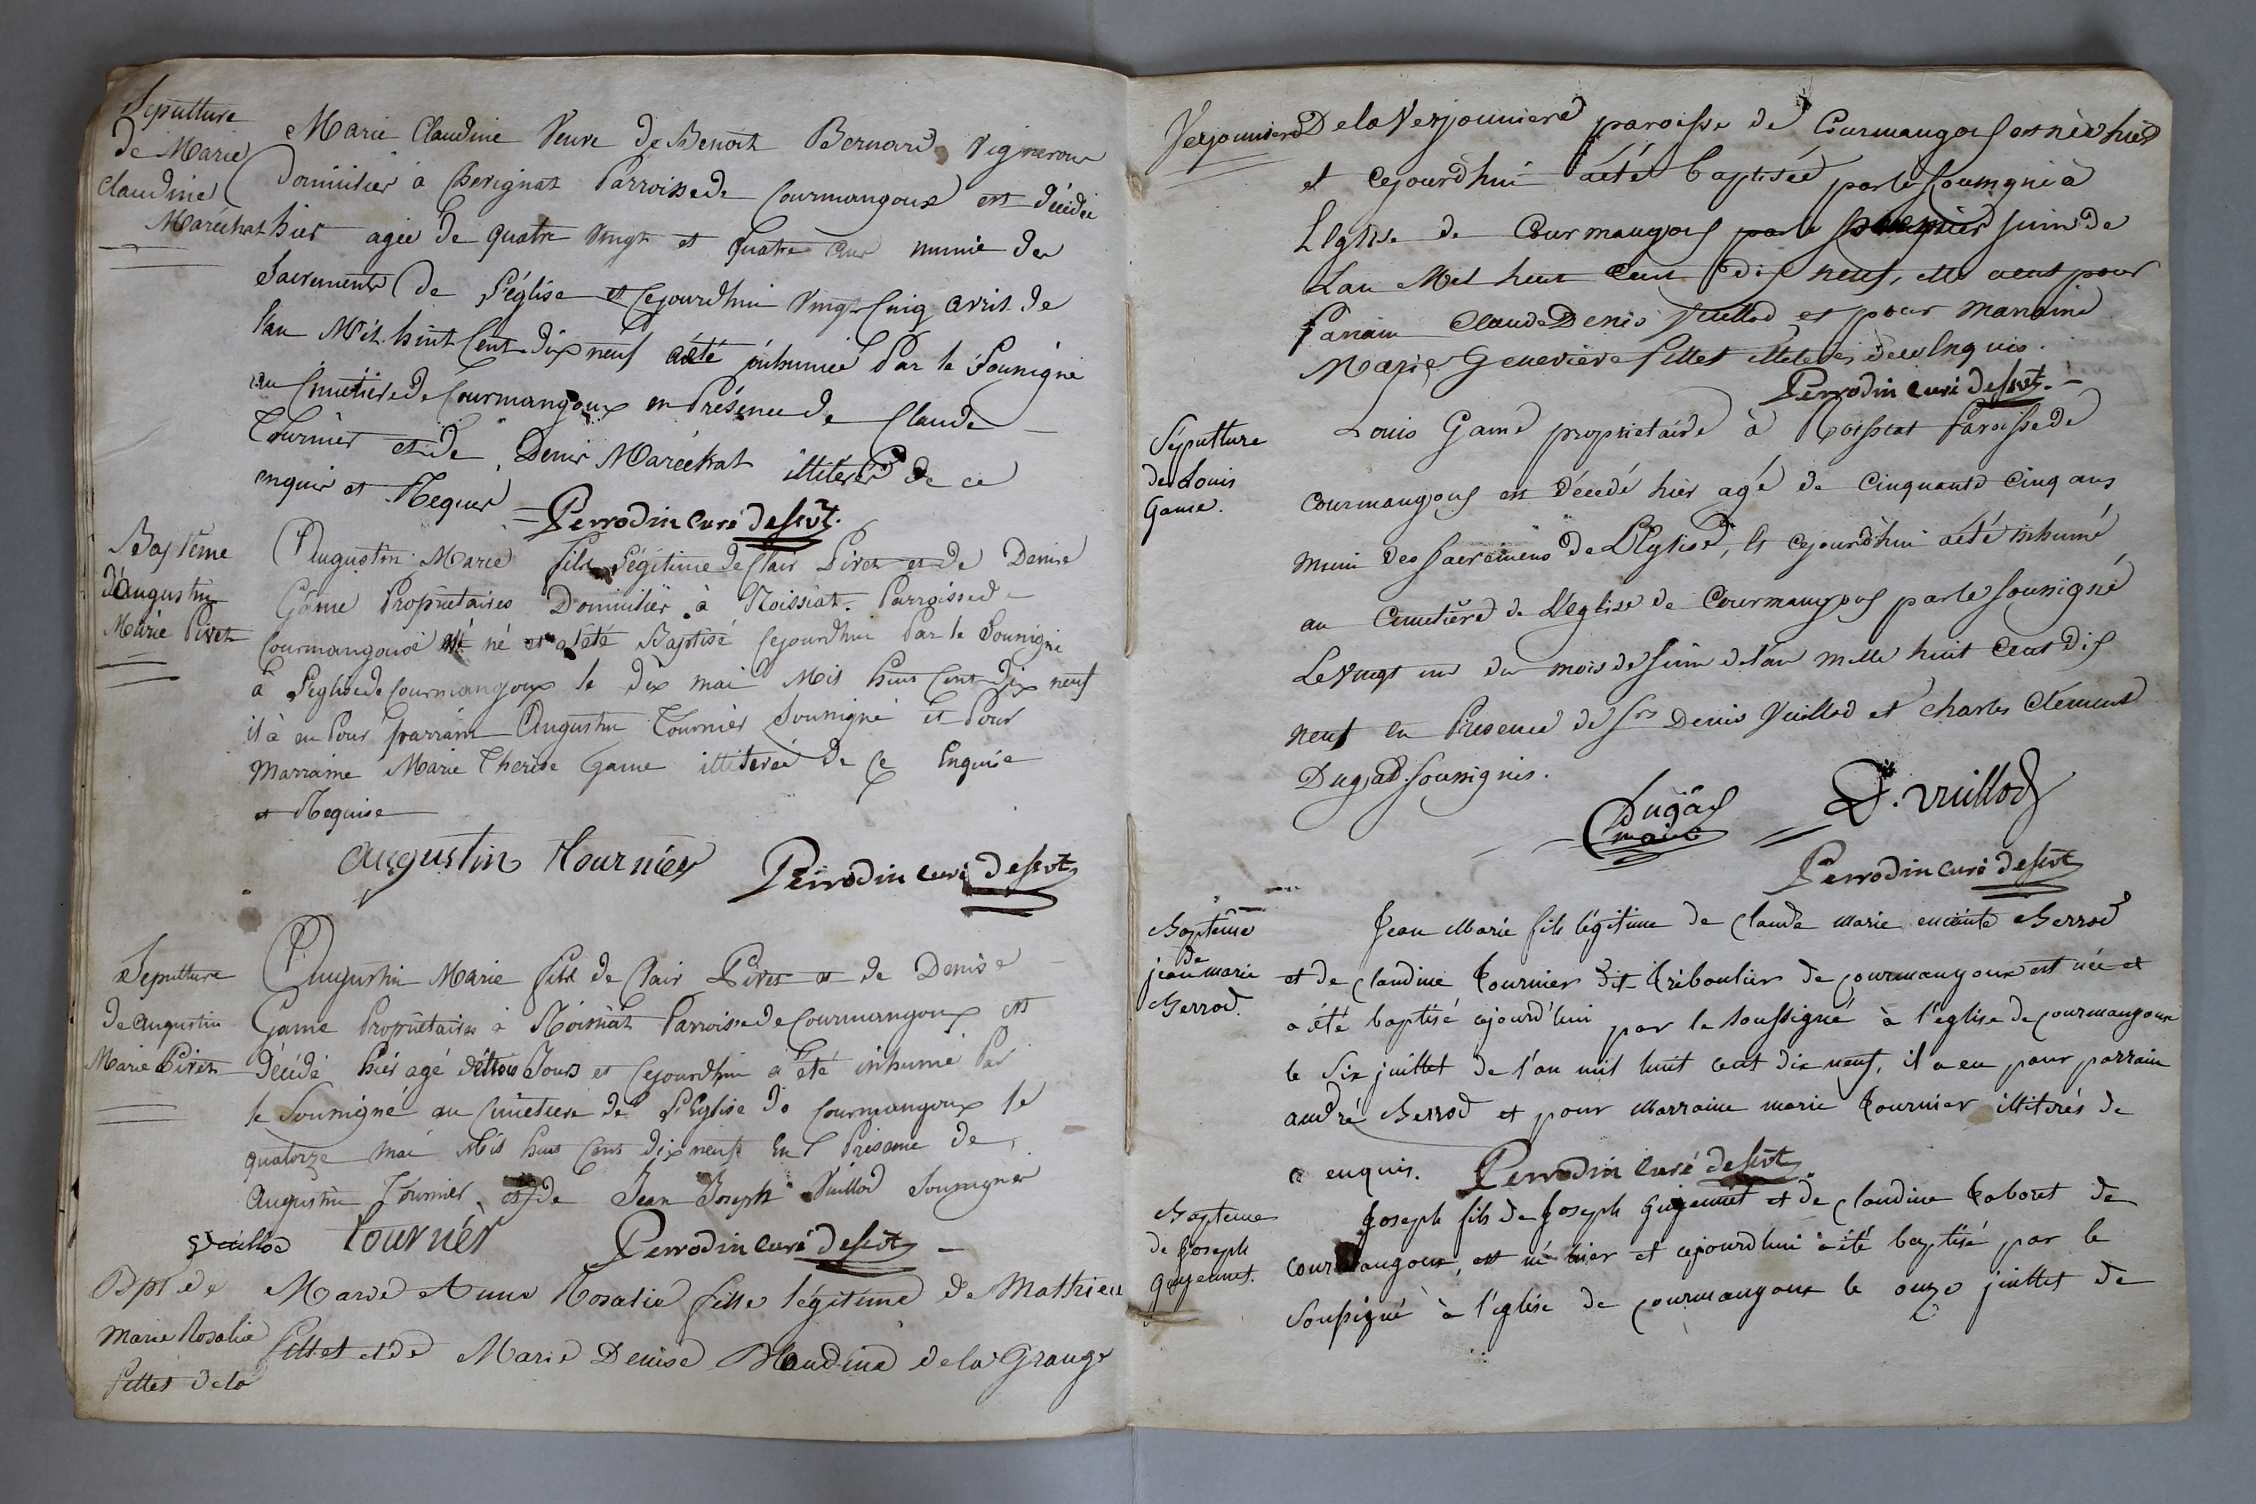 Sepulture
de Marie
Claudine
Maréchat
Marie Claudine Veuve de Benoit Bernard Vigneron
Domicilier à Chevignat Parroisse de Courmangoux est décédée
hier agée de quatre vingt et quatre ans munie des
Sacrements de l'église et Cejourdhui Vingt Cinq avril de
l'an Mil huit Cent dix neuf aété inhumée Par le Sousigné
au Cimetière de Courmangoux en Présence de Claude
Tournier et de Denis Maréchat illiterés de ce
enquis et Requis
Perrodin curé desert.
Baptême
d'augustin
Marie Piret
Augustin Marie fils Légitime de Clair Piret et de Denise
Game Propriétaires Domicilier à Roissiat Parroisse de
Courmangoux est né et a été Baptisé Cejourdhui Par le Sousigné
à l'église de Courmangoux le dix mai Mil huit Cent Dix neuf
il à eu Pour parrain Augustin Tournier Sousigné et Pour
Marraine Marie Therese Game illiterée de Ce Enquise
et Requise
augustin tournier Perrodin curé desert
Sepulture
de augustin
Marie Piret
Augustin Marie fils de Clair Piret et de Denise
Game Propriétaires à Roissiat Parroisse de Courmangoux est
décédé hier agé de trois Jours et Cejourdhui a été inhumé Par
le Sousigné au Cimetiere de l'Eglise de Courmangoux le
quatorze mai Mil huit Cent dix neuf En Présence de
Augustin Tournier et de Jean Joseph Vuillod Sousignés
Vuillod tournier Perrodin curé desert
Bpt de
Marie Rosalie
fillet de la
Marie Anne Rosalie fille légitime de Mathieu
fillet et de Marie Denise Blandine de la Grange
Verjouniere
De la Verjouniere paroisse de Courmangous est née hier
et cejourdhui aété baptisée par le sousigné à
L'Eglise de Courmangous par le premier juin de
Lan Mil huit Cent dix neuf, elle aeut pour
Parrain Claude Denis Vuillod et pour marraine
Marie Genevieve fillet illeterés de ce Enquis.
Perrodin curé desert.
Sepulture
de Louis
Game.
Louis Game proprietaire à Roissiat Paroisse de
Courmangous est décedé hier agé de Cinquante Cinq ans
muni des sacremens de L'Eglise, et cejourdhui aété inhumé
au Cimetière de L'Eglise de Courmangous par le sousigné
Le Vingt un du mois de juin de l'an mille huit Cent dix
neuf en Présence de Srs Denis Vuillod et Charles Clement
Dugad soussignés.
Dugad
maire D. vuillod
Perrodin curé desert
Baptême
de
jean marie
Berrod.
Jean Marie fils légitime de Claude marie Berrod
et de Claudine Tournier dit Triboulier de Courmangoux est née et
a été baptisé cejourd'hui par le soussigné à l'église de Courmangoux
le Six juillet de l'an mil huit cent dix neuf, il a eu pour parrain
andré Berrod et pour Marraine marie Tournier illiterés de
ce enquis. Perrodin curé desert
Bapteme
de Joseph
Guyennet.
Joseph fils de Joseph Guyennet et de Claudine Taboret de
Courmangoux, est né hier et cejourdhui a été baptisé par le
Soussigné à l'église de Courmangoux le onze juillet de